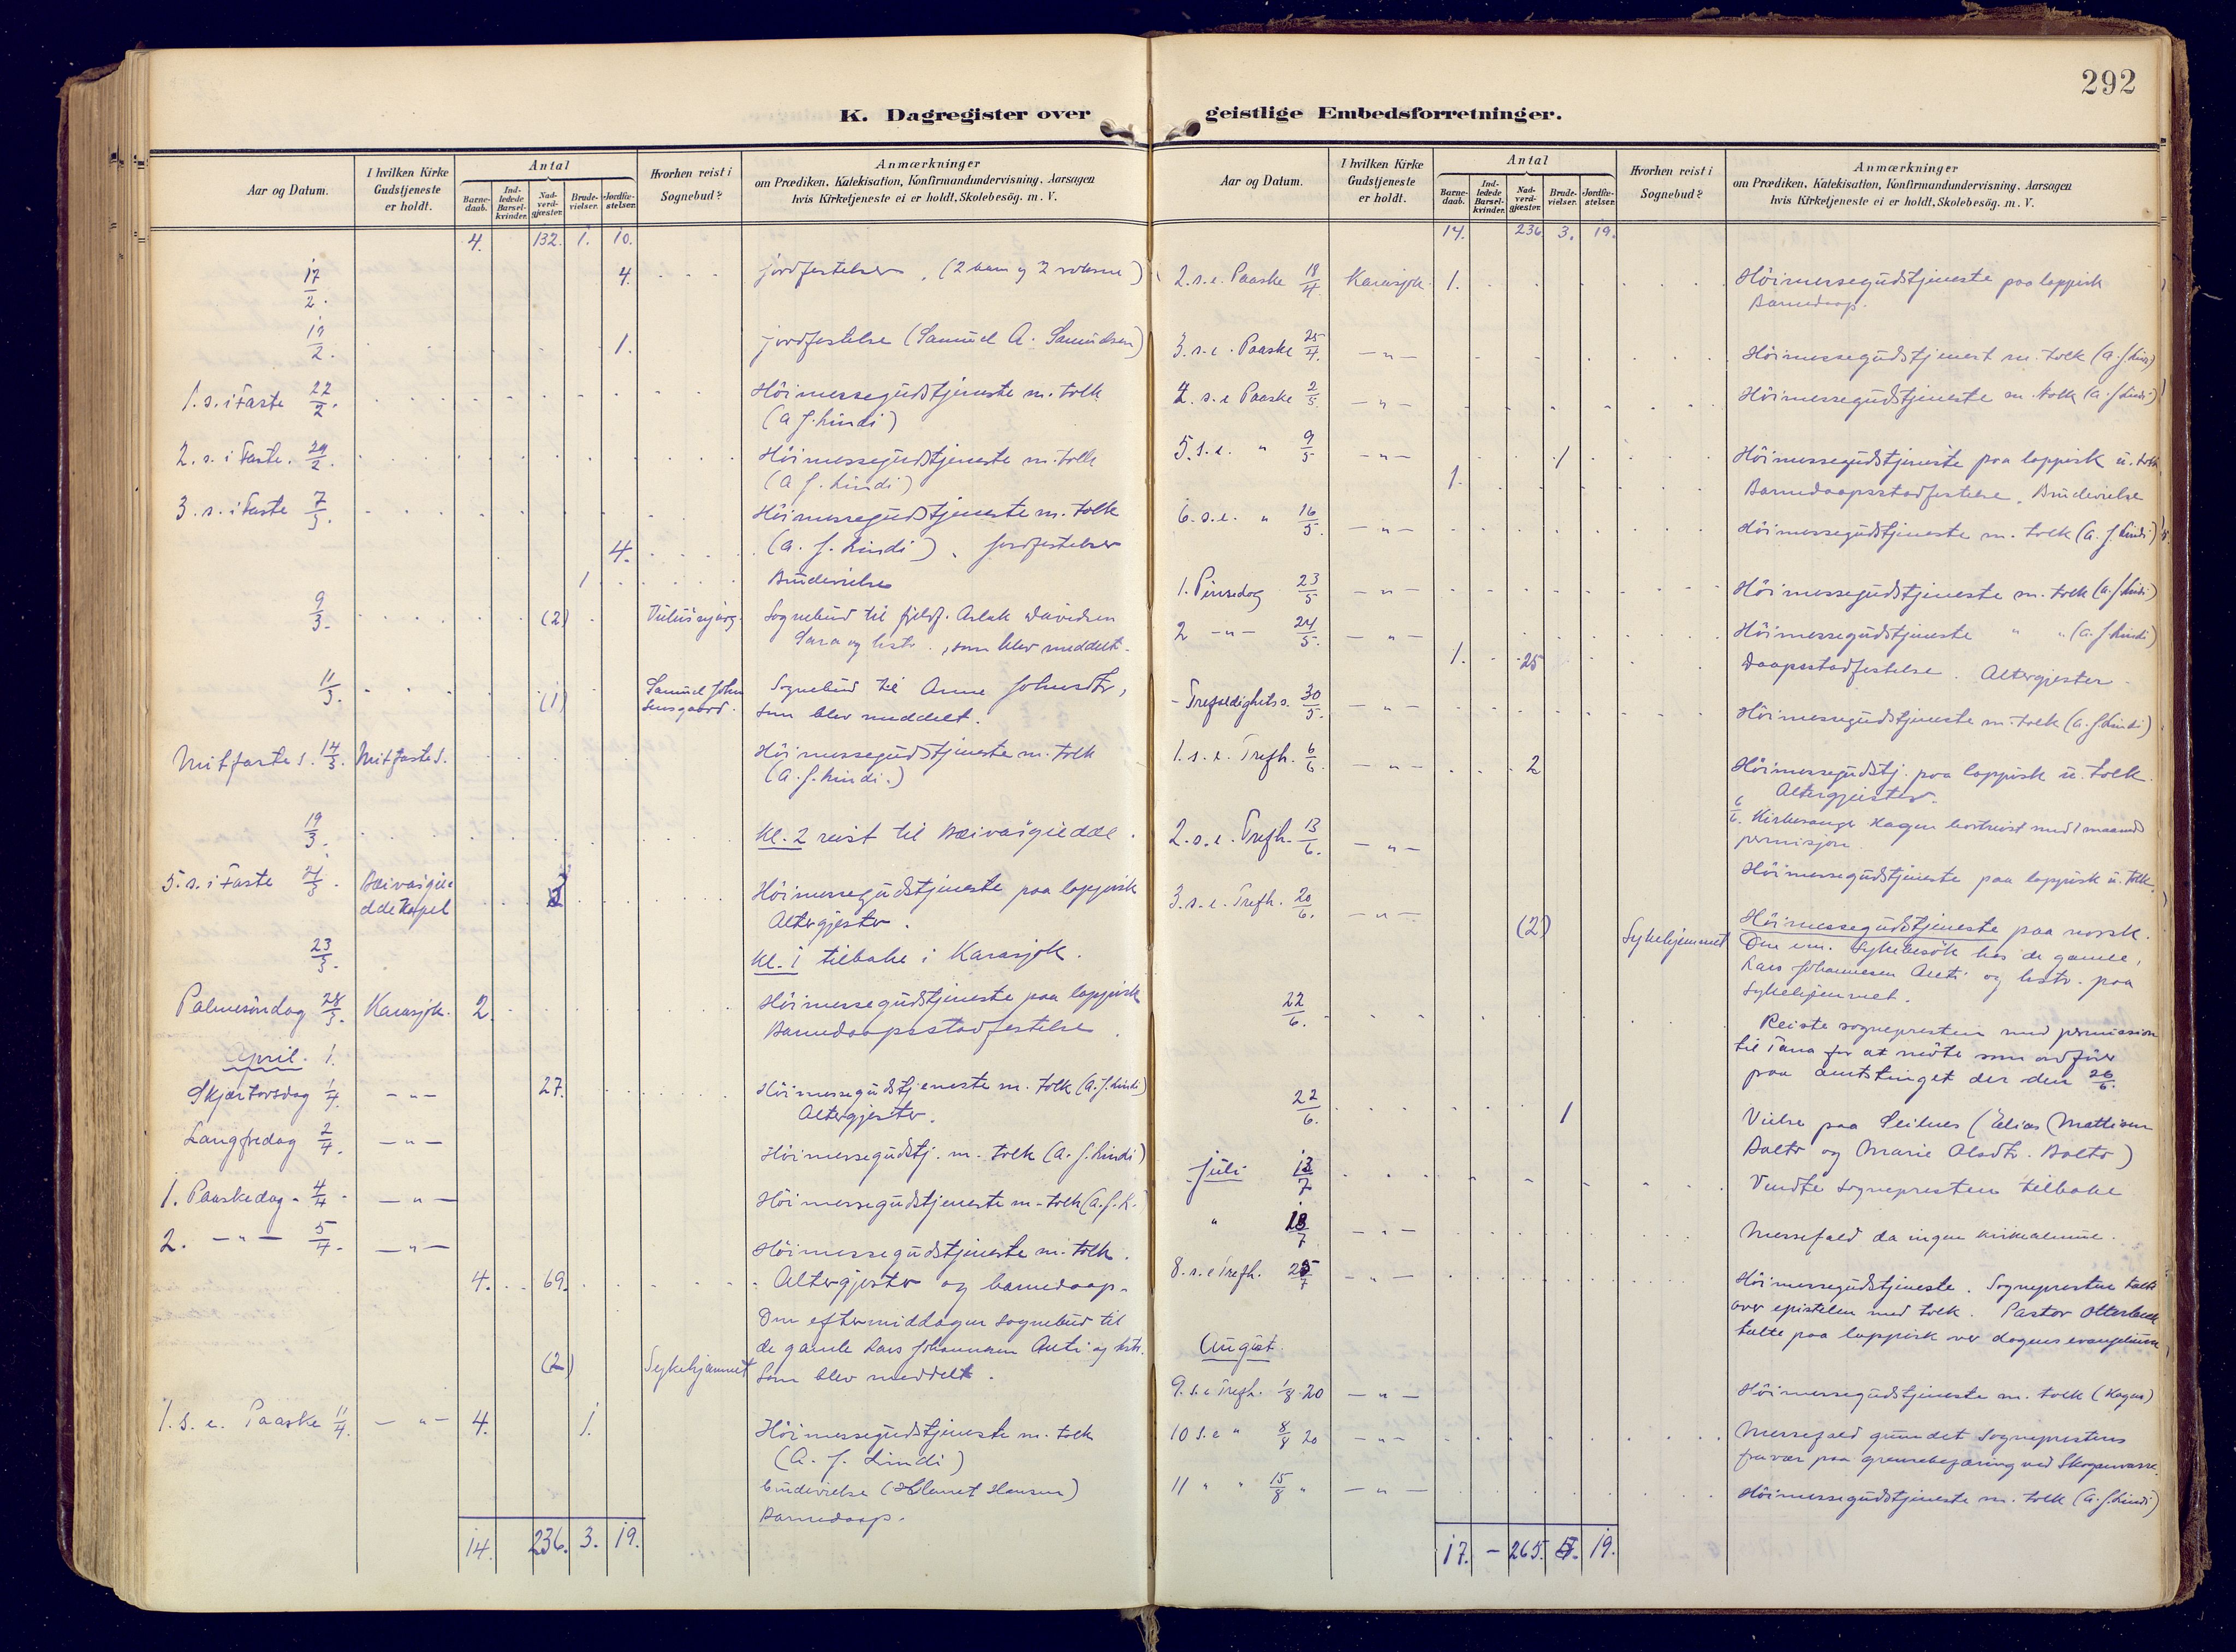 292
K. Dagregister over geistlige Embedsforretninger.
Aar og Datum.
I hvilken Kirke Gudstjeneste er holdt.
Antal
Barne-daab.
Ind-ledede Barsel-kvinder.
Nad-verd-gjæster.
Brude-vielser.
Jordfæ-stelser.
Hvorhen reist i Sognebud?
Anmærkninger
om Prædiken, Katekisation, Konfirmandundervisning, Aarsagen
hvis Kirketjeneste ei er holdt, Skolebesög. m. V.
4. 132. 1. 10.
17/2. 4. jordfestelser. (2 barn og 2 voksne)
19/2. 1. jordfestelse (Samuel A. Samuelsen)
1. s. i Faste 22/2. Höimessegudstjeneste m. tolk
(A. J. Lindi)
2. s. i Faste. 29/2. Höimessegudstjeneste m. tolk
(A J. Lindi)
3. s. i Faste 7/3. Höimessegudstjeneste m. tolk
4. (A. J. Lindi). Jordfestelser
1 Brudevielse
9/3. (2) Sognebud til fjeldf. Aslak Davidsen
Sara og hstr., som blev meddelt.
11/3. (1) Samuel Johnsensgaard. Sognebud til Anne Johnsdtr,
som blev meddelt.
Mitfaste s. 14/3. Mitfaste s. Höimessegudstjeneste m. tolk
(A. J. Lindi.)
19/3. Kl. 2 reist til Bæivašgiedde.
5. s. i Faste 21/3. Bæivašgiedde Kapel Höimessegudstjeneste paa lappisk
Altergjester.
23/3. Kl. 1 tilbake i Karasjok.
Palmesöndag 28/3. Karasjok. 2. Höimessegudstjeneste paa lappisk
Barnedaapsstadfestelse.
April. 1.
Skjærtorsdag 1/4. — " — 27. Höimessegudstjeneste m. tolk (A. J. Lindi)
Altergjester.
Langfredag 2/4. — " — Höimessegudstj. m. tolk (A. J. Lindi)
1. Paaskedag. 4/4. — " — Höimessegudstjeneste m. tolk (A. J. L.)
2. — " — 5/4. — " — Höimessegudstjeneste m. tolk.
4. 69. Altergjester og barnedaap.
Om eftermiddagen sognebud til
de gamle Lars Johannesen Anti og hstr.
(2) Sykehjemmet som blev meddelt.
1. s. e. Paaske 11/4. — " — 4. 1. Höimessegudstjeneste m. tolk
(A. J. Lindi)
brudevielse (Klemet Hansen)
Barnedaap.
14. 236. 3. 19.
Aar og Datum.
I hvilken Kirke Gudstjeneste er holdt.
Antal
Barne-daab.
Ind-ledede Barsel-kvinder.
Nad-verd-gjæster.
Brude-vielser.
Jordfæ-stelser.
Hvorhen reist i Sognebud?
Anmærkninger
om Prædiken, Katekisation, Konfirmandundervisning, Aarsagen
hvis Kirketjeneste ei er holdt, Skolebesög. m. V.
14. 236 3. 19.
2. s. e. Paaske 18/4. Karasjok. 1. Höimessegudstjeneste paa lappisk
Barnedaap.
3. s. e. Paaske 25/4. — " — Höimessegudstjenest m. tolk (A. J. Lindi)
4. s. e Paaske 2/5. — " — Höimessegudstjeneste m. tolk (A. J. Lindi)
5. s. e. " 9/5 — " — 1 Höimessegudstjeneste paa lappisk u. tolk
1. Barnedaapsstadfestelse. Brudevielse
6. s. e. " 16/5. — " — Höimessegudstjeneste m. tolk (A. J. Lindi)
1. Pinsedag 23/5 — " — Höimessegudstjeneste m. tolk (A. J. Lindi)
2 — " — 24/5. — " — Höimessegudstjeneste " " (A. J. Lindi)
1. 25 Daapsstadfestelse. Altergjester.
Trefoldighets s. 30/5. — " — Höimessegudstjeneste m. tolk (A. J. Lindi)
1. s. e. Trefh. 6/6. — " — 2 Höimessegudstj. paa lappisk u. tolk.
Altergjester.
6/6. Kirkesanger Hagen bortreist med 1 maaneds
permisjon.
2. s. e. Trefh. 13/6. — " — Höimessegudstjeneste paa lappisk u. tolk.
3. s. e. Trefh. 20/6. — " — (2) Sykehjemmet Höimessegudstjeneste paa norsk.
Om em. Sykebesök hos de gamle,
Lars Johannesen Anti og hstr. paa
Sykehjemmet.
22/6. Reiste sognepresten med permission
til Tana for at möte som ordförer
paa amtstinget der den 26/6.
22/6. 1 Vielse paa Seitnes (Elias Mattisen
Balto og Marie Olsdtr. Balto)
Juli 13/7 Vendte sognepresten tilbake
" 18/7 — " — Messefald da ingen kirkealmue.
8. s. e Trefh. 25/7 — " — Höimessegudstjeneste. Sognepresten talte
over epistelen med tolk. Pastor Otterbech
talte paa lappisk over dagens evangelium
August.
9. s. e Trefh. 1/8 20 — " — Höimessegudstjeneste m. tolk (Hagen)
10 s. e " 8/8 20 — " — Messefald grundet sogneprestens
fravær paa grensebefaring ved Skoganvarre.
11 " " 15/8 " — " — Höimessegudstjeneste m. tolk (A. J. Lindi)
17. — 265. 5. 19.